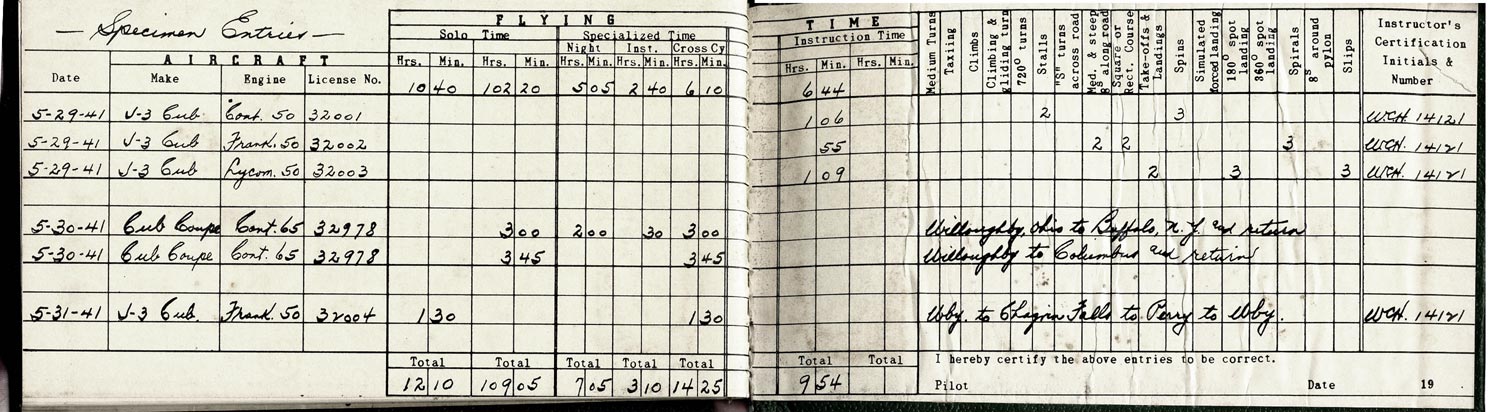 — Specimen Entries —
FLYING TIME
Solo Time Specialized Time Instruction Time
Night Inst. Cross Cy
AIRCRAFT
Date Make Engine License No. Hrs. Min. Hrs. Min. Hrs. Min. Hrs. Min. Hrs. Min. Hrs. Min. Hrs. Min.
Medium Turns
Taxiing
Climbs
Climbing & gliding turn
720° turns
Stalls
"S" turns across road
Med. & steep 8s along road
Square or Rect. Course
Take-offs & Landings
Spins
Simulated forced landing
180° spot landing
360° spot landing
Spirals
8s around pylon
Slips
Instructor's
Certification
Initials &
Number
10 40 102 20 5 05 2 40 6 10 6 44
5-29-41 J-3 Cub Cont. 50 32001 1 06 2 3 WCH. 14121
5-29-41 J-3 Cub Frank. 50 32002 55 2 2 3 WCH. 14121
5-29-41 J-3 Cub Lycom. 50 32003 1 09 2 3 3 WCH. 14121
5-30-41 Cub Coupe Cont. 65 32978 3 00 2 00 30 3 00 Willoughby, Ohio to Buffalo, N.Y. and return
5-30-41 Cub Coupe Cont. 65 32978 3 45 3 45 Willoughby to Columbus and return
5-31-41 J-3 Cub. Frank. 50 32004 1 30 1 30 Wby. to Chagrin Falls to Perry to Wby. WCH. 14121
Total Total Total Total Total Total Total I hereby certify the above entries to be correct.
12 10 109 05 7 05 3 10 14 25 9 54 Pilot Date 19